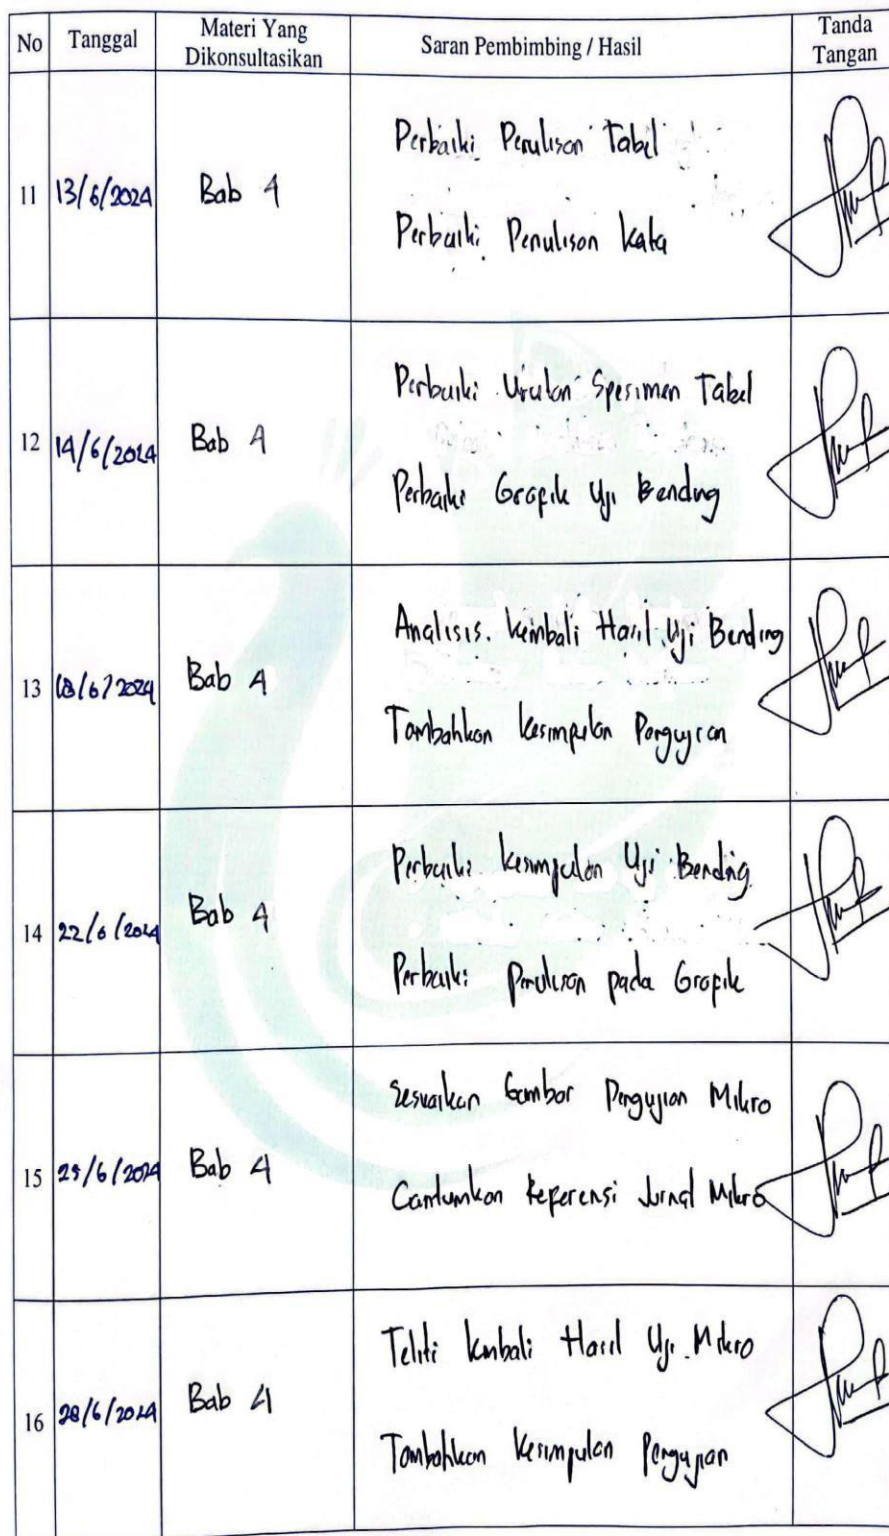 No Tanggal Materi Yang Dikonsultasikan Saran Pembimbing / Hasil Tanda Tangan
11 13/6/2024 Bab 4 Perbaiki Penulisan Tabel
Perbaiki Penulisan Kata
12 14/6/2024 Bab 4 Perbaiki Urutan Spesimen Tabel
Perbaiki Grafik Uji Bending
13 18/6/2024 Bab 4 Analisis Kembali Hasil Uji Bending
Tambahkan Kesimpulan Pengujian
14 22/6/2024 Bab 4 Perbaiki Kesimpulan Uji Bending
Perbaiki Penulisan pada Grafik
15 25/6/2024 Bab 4 Sesuaikan Gambar Pengujian Mikro
Cantumkan Referensi Jurnal Mikro
16 28/6/2024 Bab 4 Teliti Kembali Hasil Uji Mikro
Tambahkan Kesimpulan Pengujian